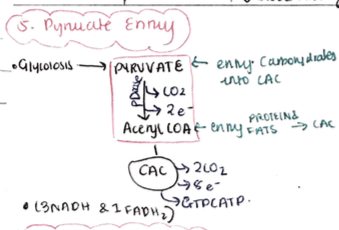 5. Pyruvate Entry
• Glycolosis → PYRUVATE ← entry Carbohydrates
into CAC
PDase
→ CO2
→ 2e⁻
Acetyl COA ← entry PROTEINS
FATS → CAC
CAC → 2CO2
→ 8e⁻
→ GTP(ATP.
• (3NADH & 1 FADH₂)